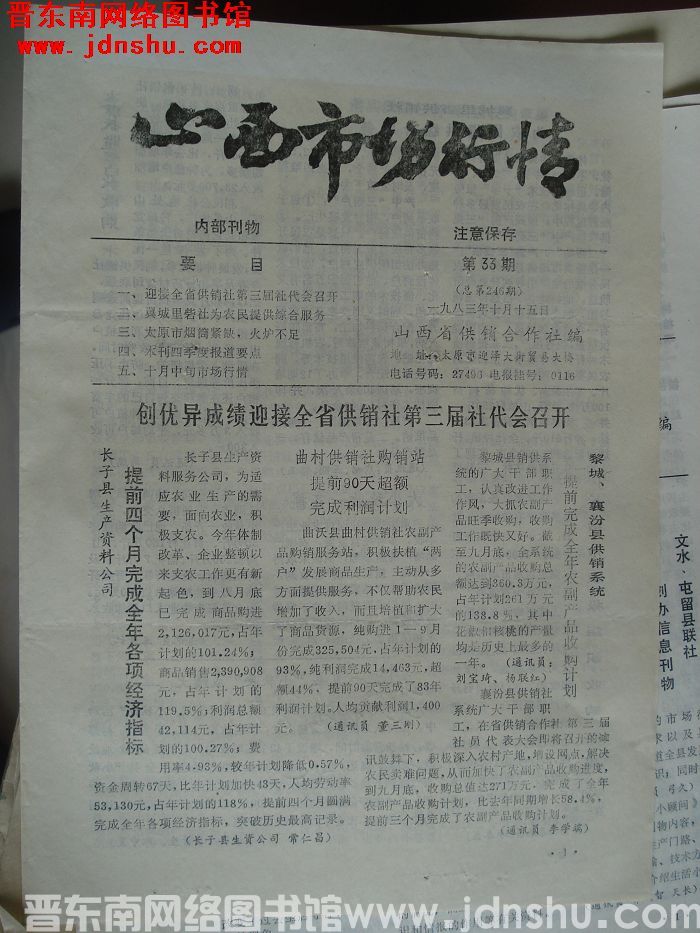 晋东南网络图书馆
www.jdnshu.com
山西市场行情
内部刊物
注意保存
要目
一、迎接全省供销社第三届社代会召开
二、翼城里砦社为农民提供综合服务
三、太原市烟筒紧缺，火炉不足
四、本刊四季度报道要点
五、十月中旬市场行情
第33期
（总第246期）
一九八三年十月十五日
山西省供销合作社编
地址：太原市迎泽大街贸易大楼
电话号码：27496 电报挂号：0116
创优异成绩迎接全省供销社第三届社代会召开
长子县生产资料公司
提前四个月完成全年各项经济指标
长子县生产资
料服务公司，为适
应农业生产的需
要，面向农业，积
极支农。今年体制
改革、企业整顿以
来支农工作更有新
起色，到八月底
已完成商品购进
2,126,017元，占年
计划的101.24%；
商品销售2,390,908
元，占年计划的
119.5%；利润总额
42,114元，占年计
划的100.27%；费
用率4.93%，较年计划降低0.57%，
资金周转67天，比年计划加快43天，人均劳动率
53,130元，占年计划的118%，提前四个月圆满
完成全年各项经济指标，突破历史最高记录。
（长子县生资公司 常仁昌）
曲村供销社购销站
提前90天超额
完成利润计划
曲沃县曲村供销社农副产
品购销服务站，积极扶植“两
户”发展商品生产，主动从多
方面提供服务，不仅帮助农民
增加了收入，而且培植和扩大
了商品货源，纯购进1—9月
份完成325,504元，占年计划的
93%，纯利润完成14,463元，超
额44%，提前90天完成了83年
利润计划。人均贡献利润1,400
元。（通讯员 董三刚）
黎城、襄汾县供销系统
提前完成全年农副产品收购计划
黎城县供销系
统的广大干部职
工，认真改进工作
作风，大抓农副产
品旺季收购，收购
工作既快又好。截
至九月底，全系统
的农副产品收购总
额达到360.3万元，
占年计划261万元
的138.8%，其中
花椒和核桃的产量
均是历史上最多的
一年。（通讯员：
刘宝琦、杨联红）
襄汾县供销社
系统广大干部职
工，在省供销合作社第三届
社员代表大会即将召开的喜
讯鼓舞下，积极深入农村产地，增设网点，解决
农民卖难问题，从而加快了农副产品收购进度，
到九月底，收购总值达271万元，完成了全年
农副产品收购计划，比去年同期增长58.4%，
提前三个月完成了农副产品收购计划。
（通讯员 李学瑞）
·1·
编
文水、屯留县联社
创办信息刊物
晋东南网络图书馆
www.jdnshu.com